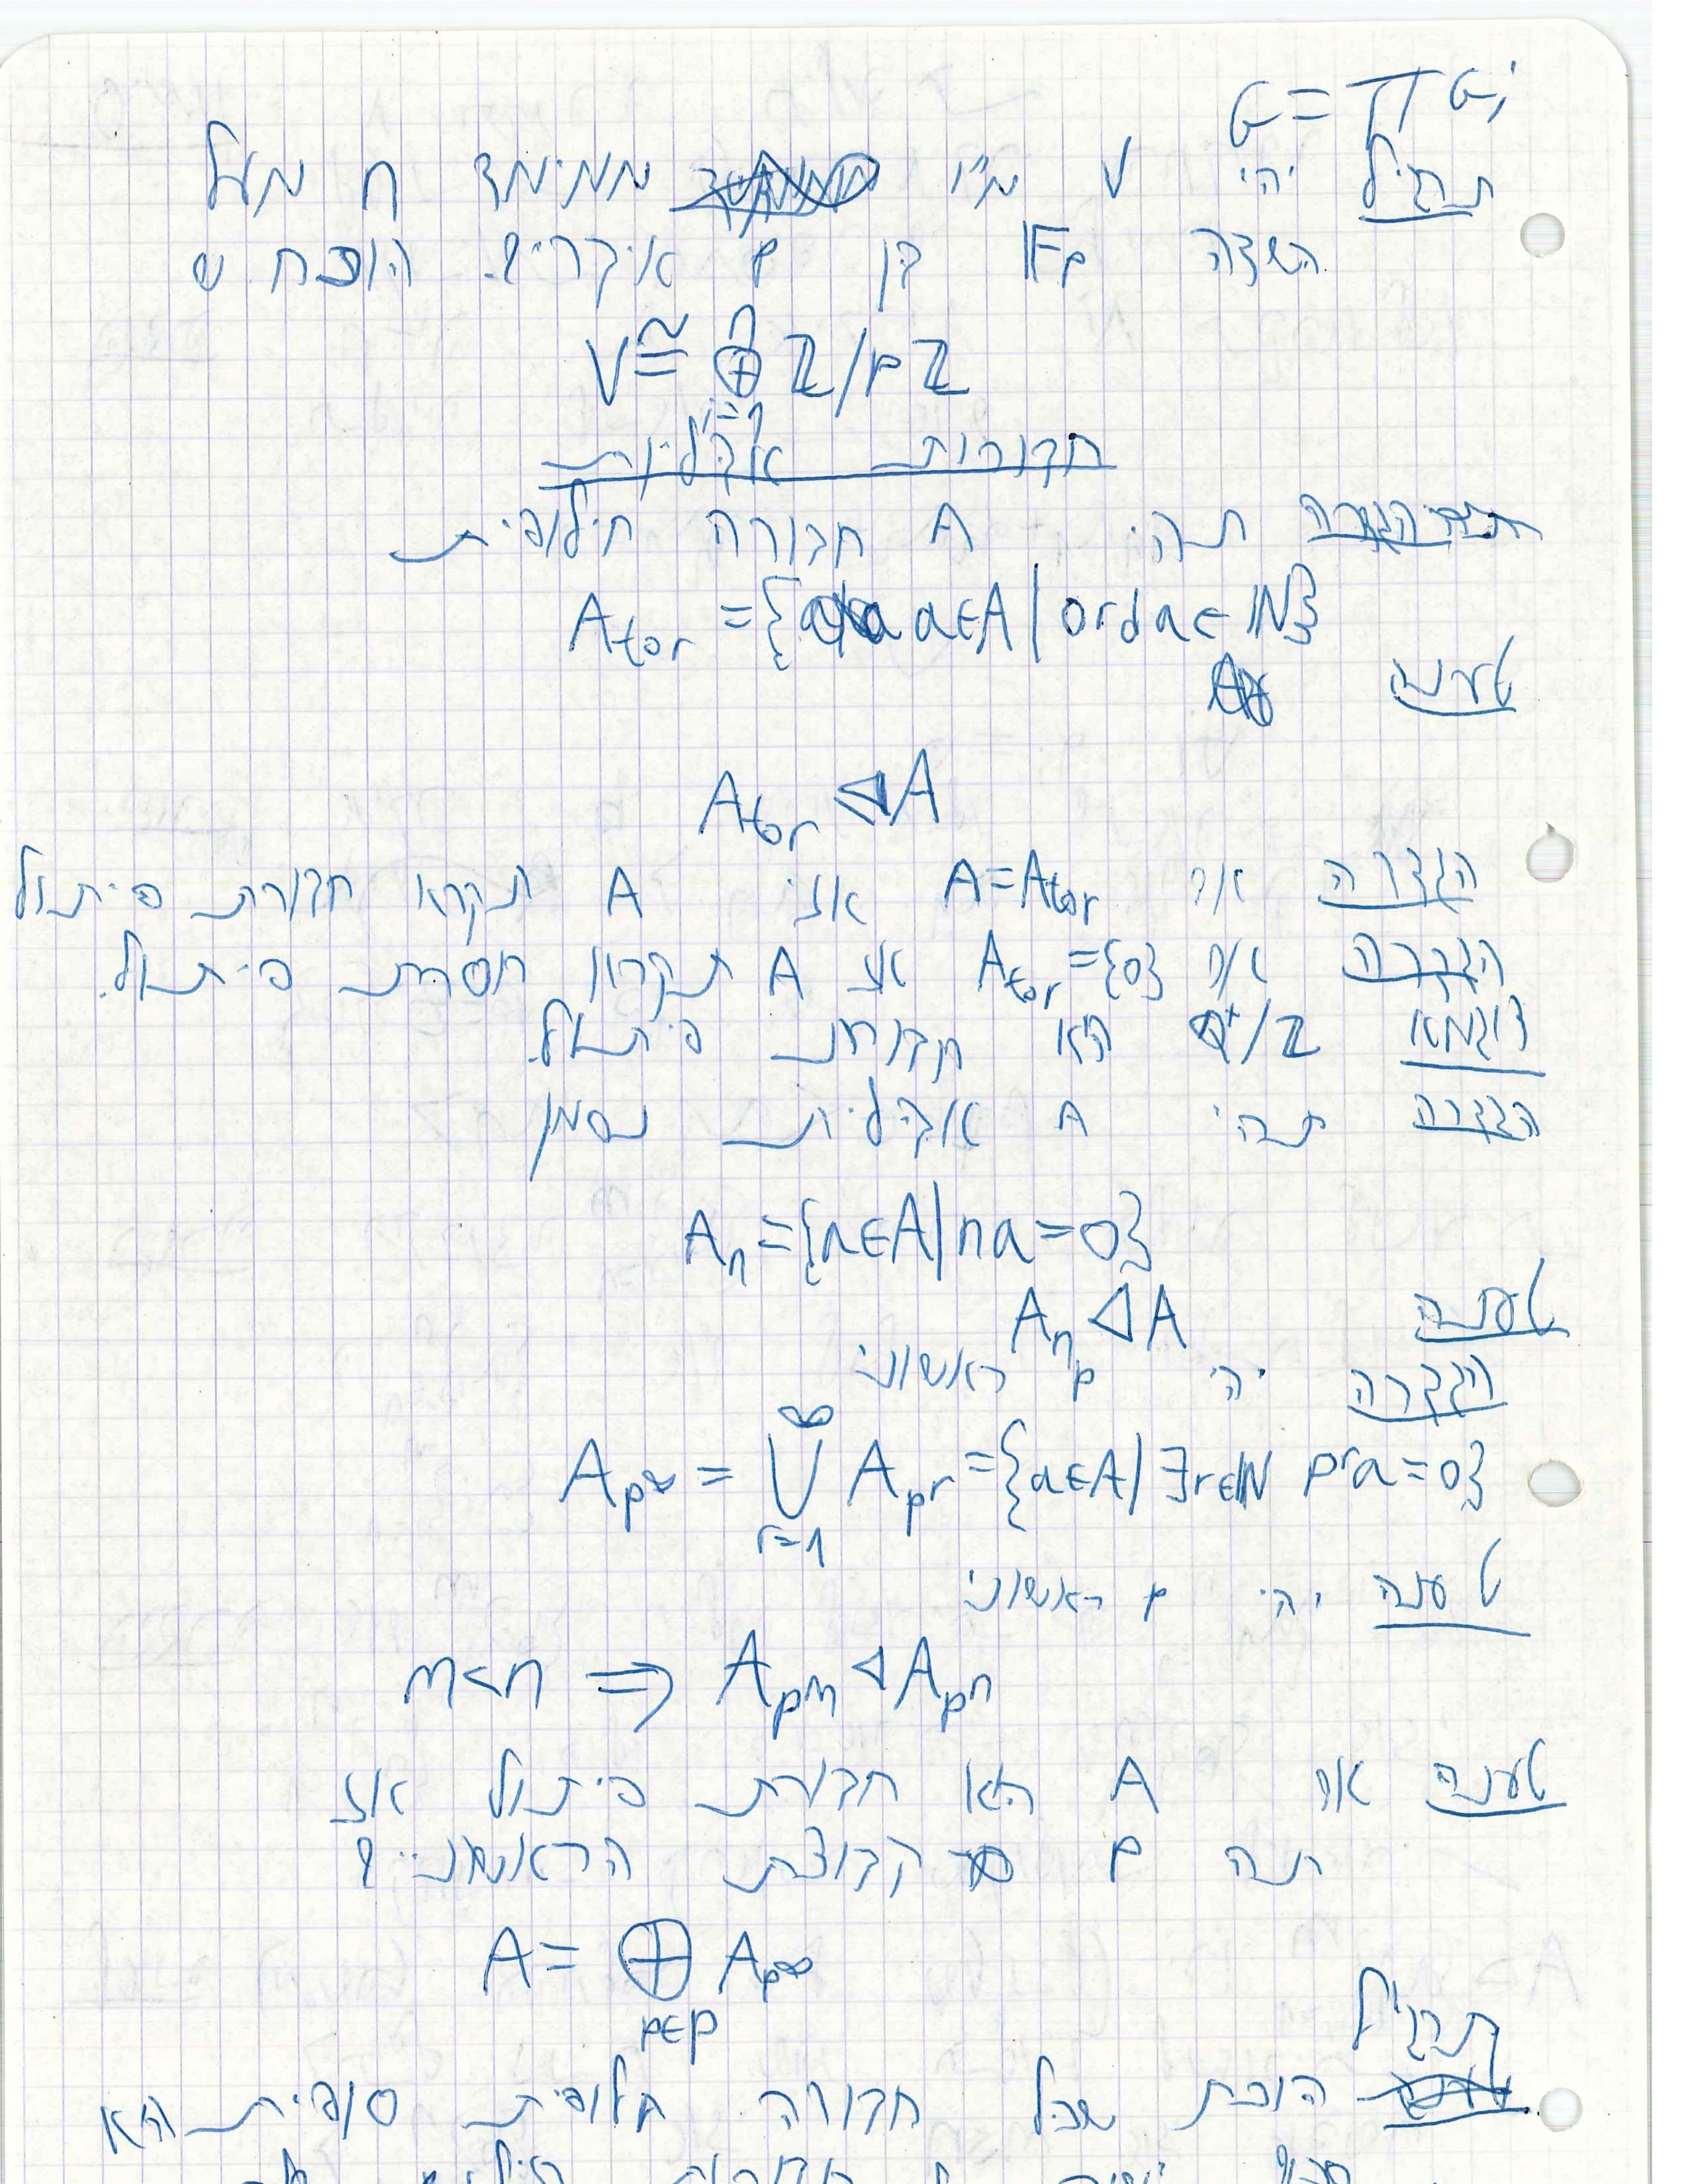 G = ∏ Gᵢ
תרגיל יהי V מ"ו ממימד n מעל
השדה 𝔽p בן p איברים. הוכח ש
V ≅ ⊕ⁿᵢ₌₁ ℤ/pℤ
חבורות אבליות
הגדרה תהי A חבורה חילופית
A_tor = {a∈A | ord a ∈ ℕ}
טענה
A_tor ◁ A
הגדרה אם A = A_tor אזי A תקרא חבורת פיתול
הגדרה אם A_tor = {0} אז A תקרא חסרת פיתול.
דוגמא ℚ⁺/ℤ היא חבורת פיתול.
הגדרה תהי A אבלית נסמן
A_n = {a∈A | na = 0}
טענה A_n ◁ A
הגדרה יהי p ראשוני
A_p∞ = ⋃^∞_{r=1} A_pʳ = {a∈A | ∃r∈ℕ pʳa = 0}
טענה יהי p ראשוני
m<n ⟹ A_pᵐ ◁ A_pⁿ
טענה אם A היא חבורת פיתול אז
תהי P קבוצת הראשוניים
A = ⊕_{p∈P} A_p∞
תרגיל
הוכח שכל חבורה חלופית סופית היא